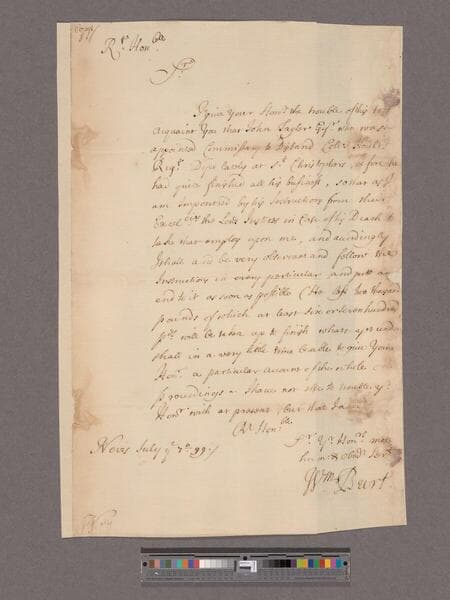 Rt Honble
Sr
I give your Honr the trouble of this to
acquaint You that John Tayler Esqr who was
appointed Commissary to Disband Coll:
Regt. Dyed lately at St Christophers, before he
had quite finished all his business, so that as I
am Impowered by his Instructions from their
Excelcies the Lords Justices in Case of his Death to
take that employ upon me, and accordingly
I shall be very observant and follow the
Instructions in every particular and putt an
end to it as soon as possible (He left two thousand
pounds of which at least six or seven hundred
will be taken up to finish whats yet
shall in a very little time be able to give Your
Honr. a particular account of the whole
proceedings I have not else to trouble yr
Honr with at present, but that I am
Rt Honble
Sr Yr Honrs most
humle & obedt Servt
Wm Burt
Nevis July ye 7th 99